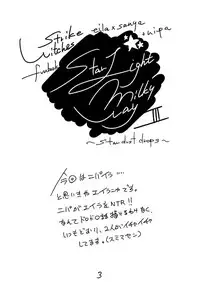 Strike
Witches
eila x sanya
+ nipa
Star Light
Milky
Way
III
~stardust drops~
と思いきやエイラニャです。
ニパがエイラをNTR!!
なんてドロドロ話描けるわけもなく、
いつもどおり、2人がイチャイチャ
してます。(スミマセン)
3